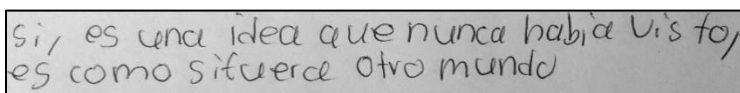 si, es una idea que nunca había visto,
es como si fuera otro mundo